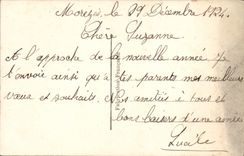 le 29 Décembre 1924.
Chère Suzanne
A l'approche de la nouvelle année je
t'envoie ainsi qu'à tes parents mes meilleurs
vœux et souhaits. Mes amitiés à tous et
bons baisers d'une amie
Lucile